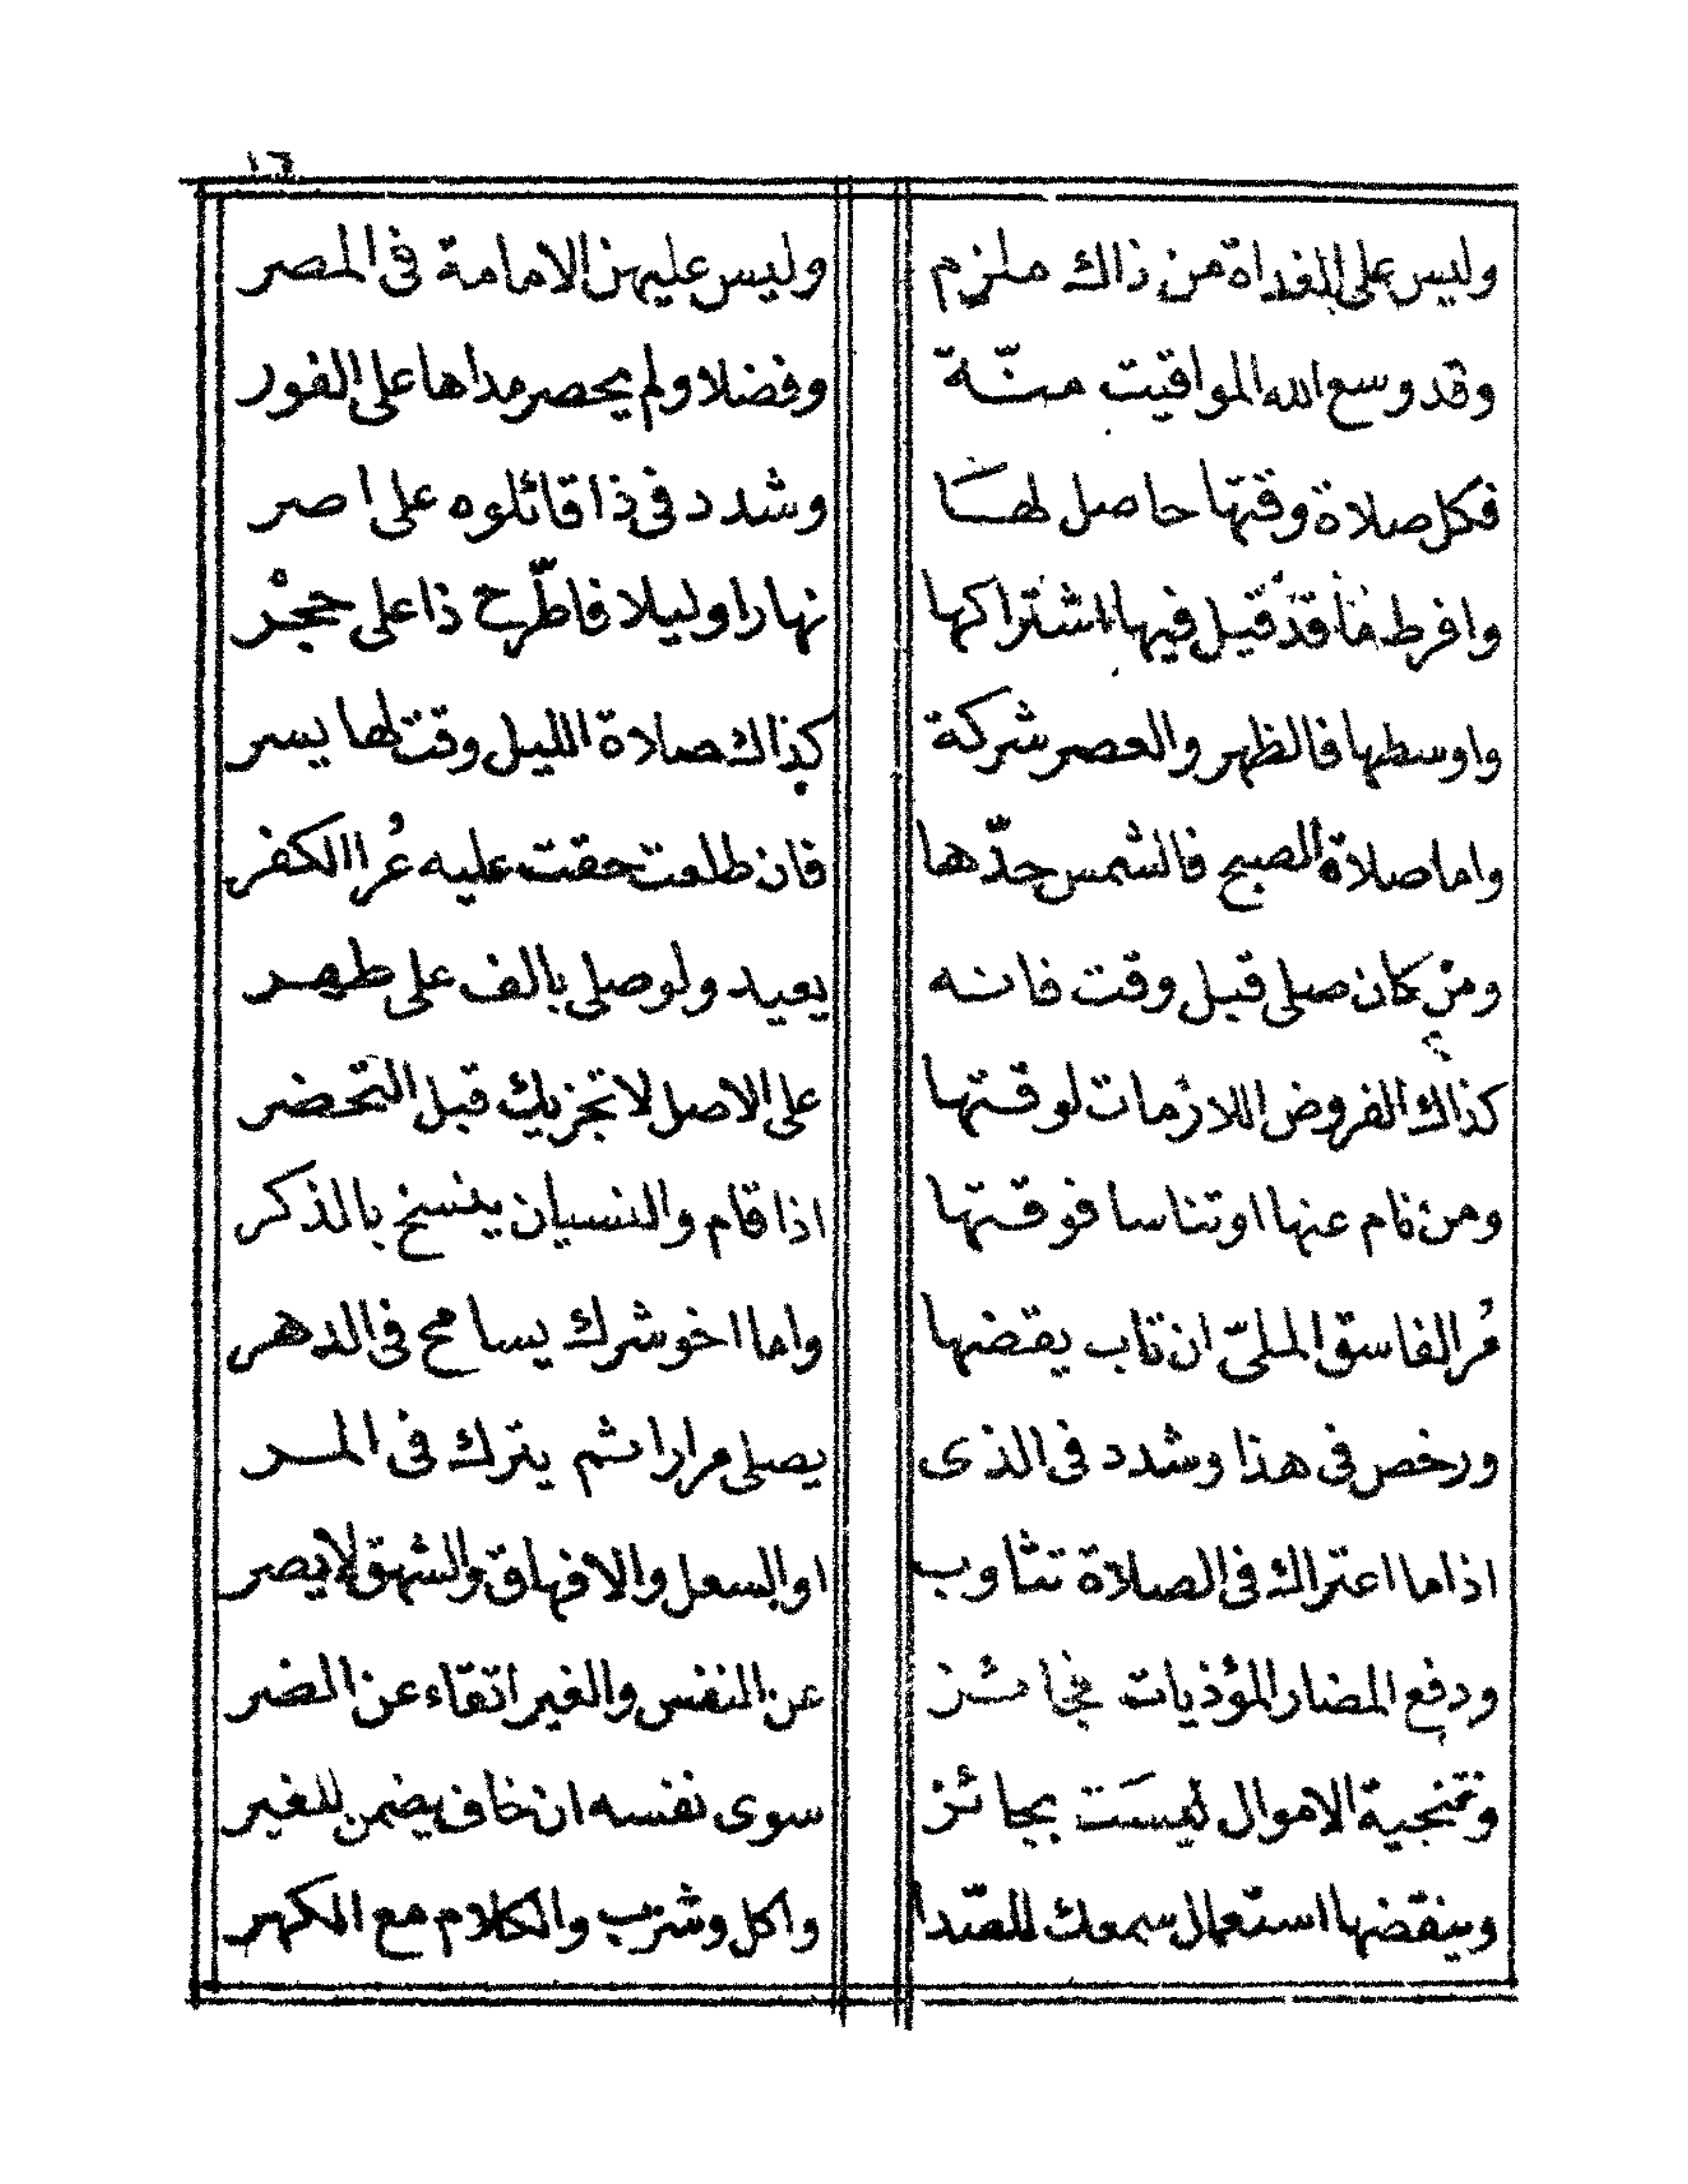 ١٦
وليس على الغداة من ذاك ملزم وليس عليهن الامامة فى المصر
وقد وسع الله المواقيت منّة وفضلا ولم يحصر مداها على الفور
فكل صلاة وقتها حاصل لها وشدد فى ذا قائلوه على اصر
وافرط ما قد قيل فيها اشتراكها نهارا وليلا فاطّرح ذا على حجْر
واوسطها فالظهر والعصر شركة كذاك صلاة الليل وقت لها يسر
واما صلاة الصبح فالشمس حدّها فان طلعت حقت عليه عُرا الكفر
ومن كان صلى قبل وقت فانه يعيد ولو صلى بالف على طهر
كذاك الفروض اللازمات لوقتها على الاصل لا تجزيك قبل التحضر
ومن نام عنها او تناسا فوقتها اذا قام والنسيان ينسخ بالذكر
مُر الفاسق الملىّ ان تاب يقضها واما اخو شرك يسامح فى الدهر
ورخص فى هذا وشدد فى الذى يصلى مرارا ثم يترك فى المر
اذا ما اعتراك فى الصلاة تثاوب او السعل والافهاق والشهق لا يصر
ودفع المضار المؤذيات فجائز عن النفس والغير اتقاء عن الضر
وتنجية الاموال ليست بجائز سوى نفسه ان خاف يضمن للغير
وينقضها استعمال سمعك للصّدا واكل وشرب والكلام مع الكهر